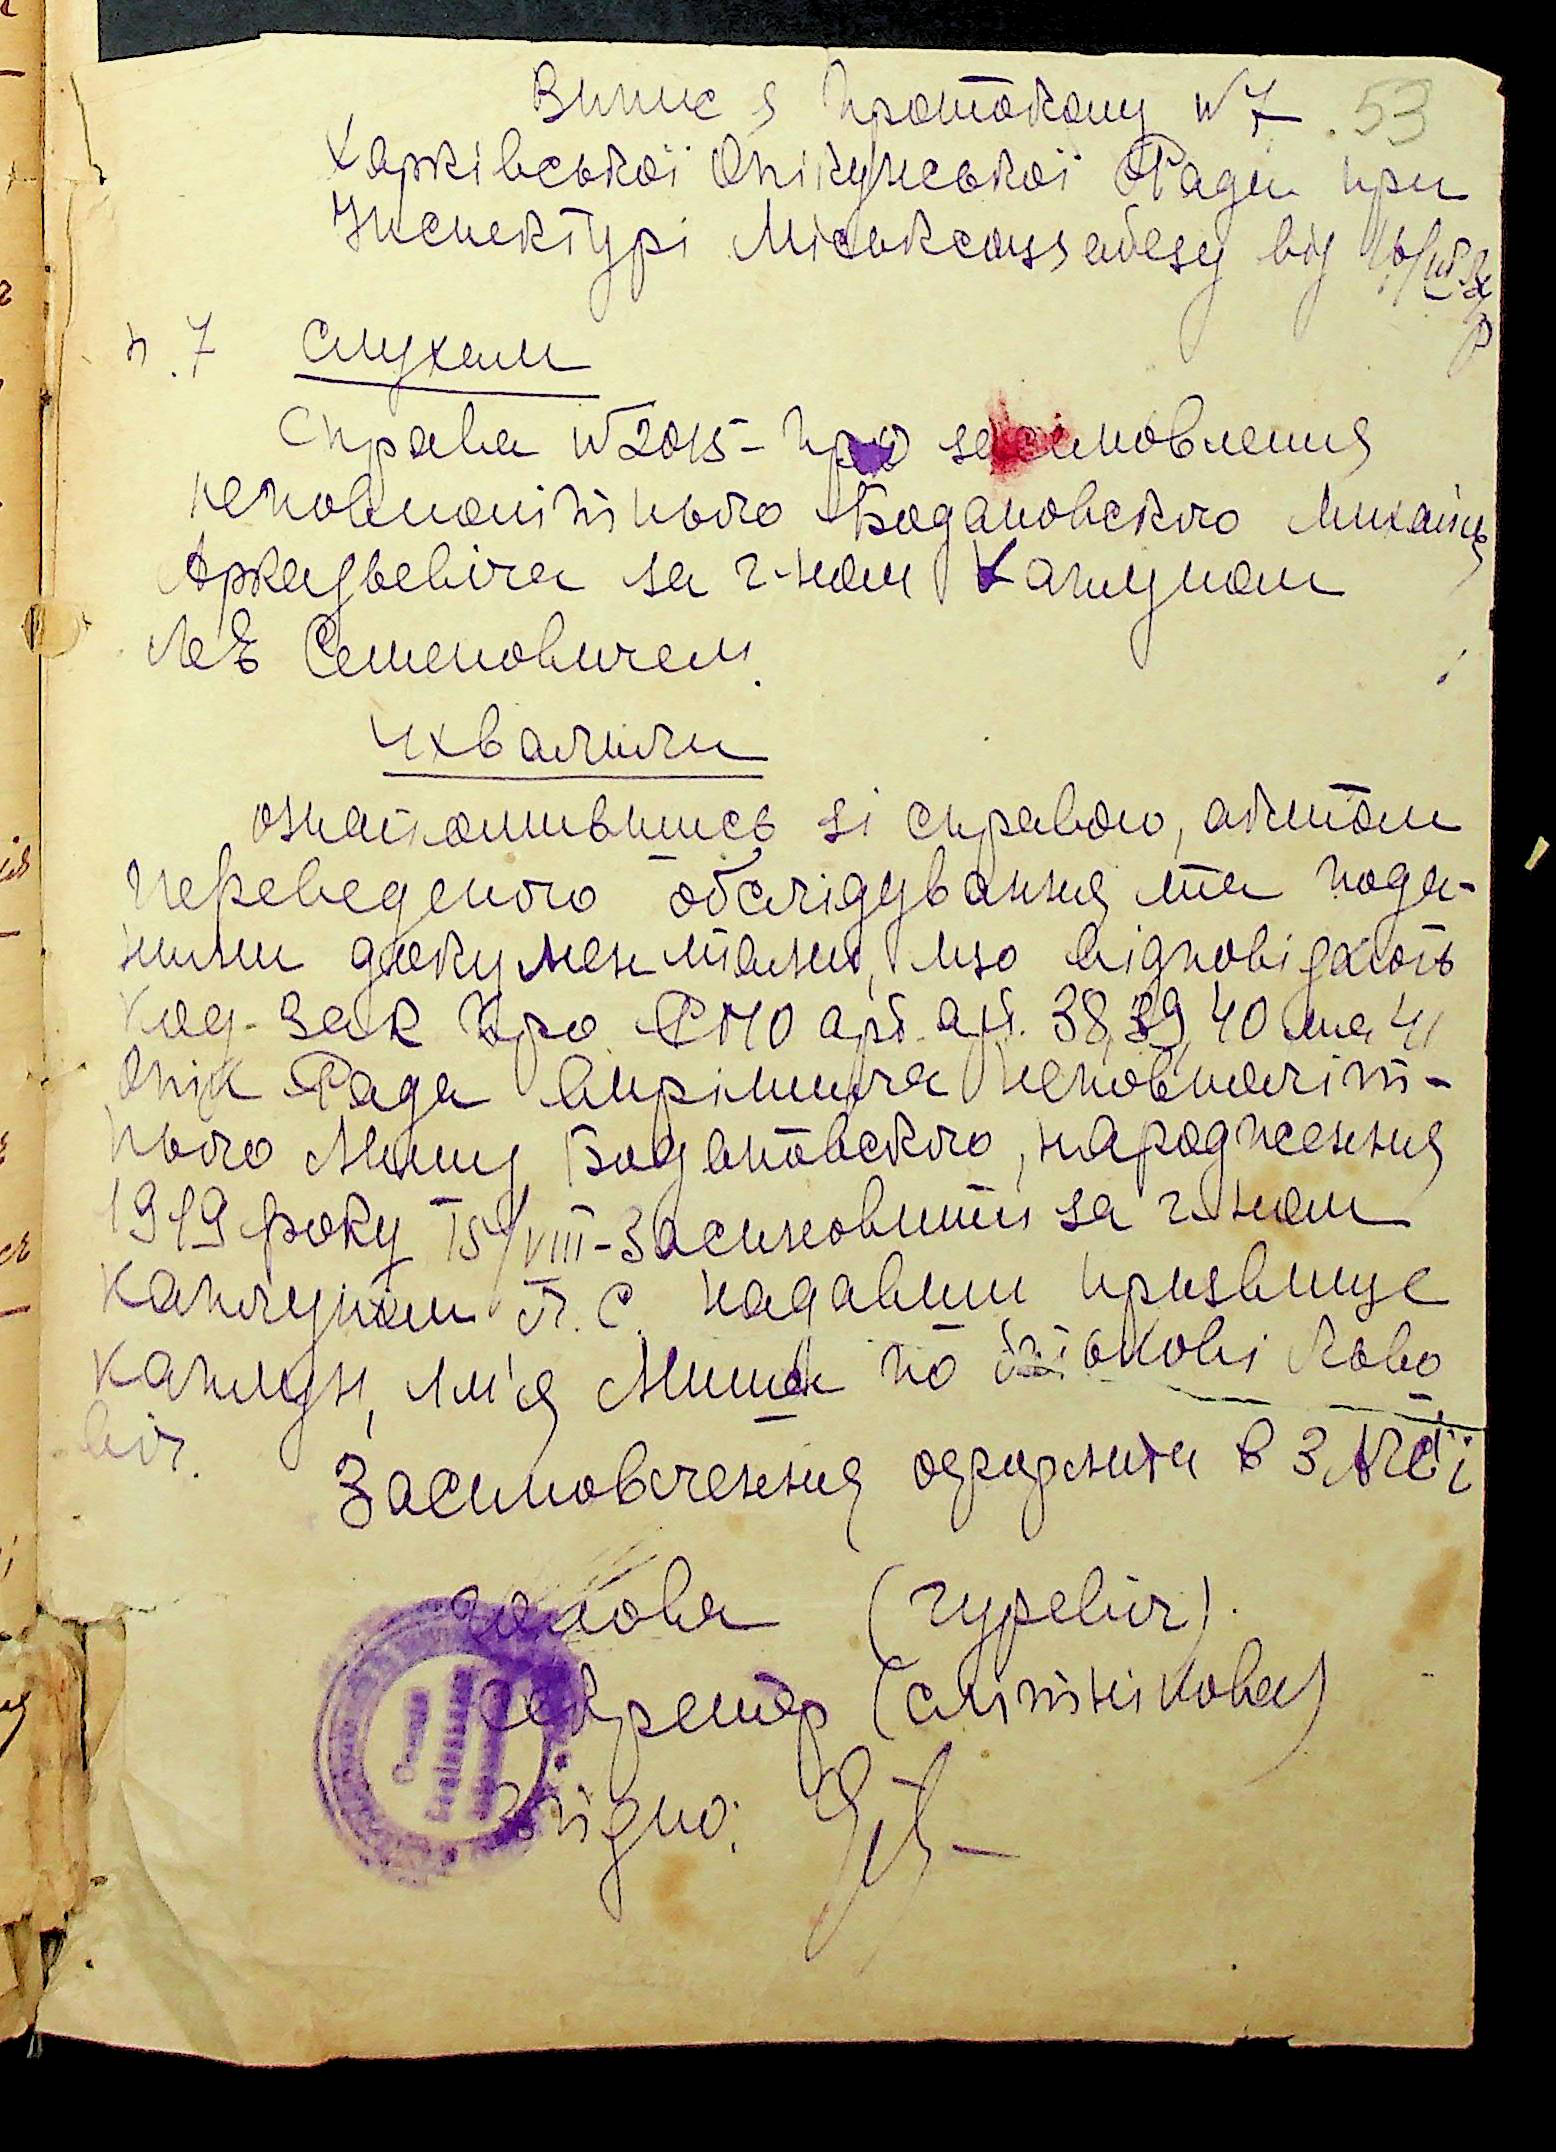 Випис з протоколу №7 53
Харківської Опікунської Ради при
Инспектурі Міськсоцзабезу від
п. 7 Слухали
Справа №2015 - про засиновлення
неповнолітнього Бодановского Михаіла
Аркадьевіча за г-ном Каплуном
Лев Семеновичем.
Ухвалили
ознайомившись зі справою, актом
переведеного обслідування та пода-
ними документами, що відповідають
код. Зак про СПО арт. арт. 38, 39, 40 та 41
Опік Рада вирішила неповноліт-
нього Мишу Бодановского, народження
1919 року 15/VIII - Засиновити за г-ном
Каплуном Л. С. надавши призвище
Каплун, им'я Миша по батькові Льво
віч.
Засиновлення оформити в ЗАГСі
Голова (Гуревіч).
Секретар (Слітнікова)
Згідно: